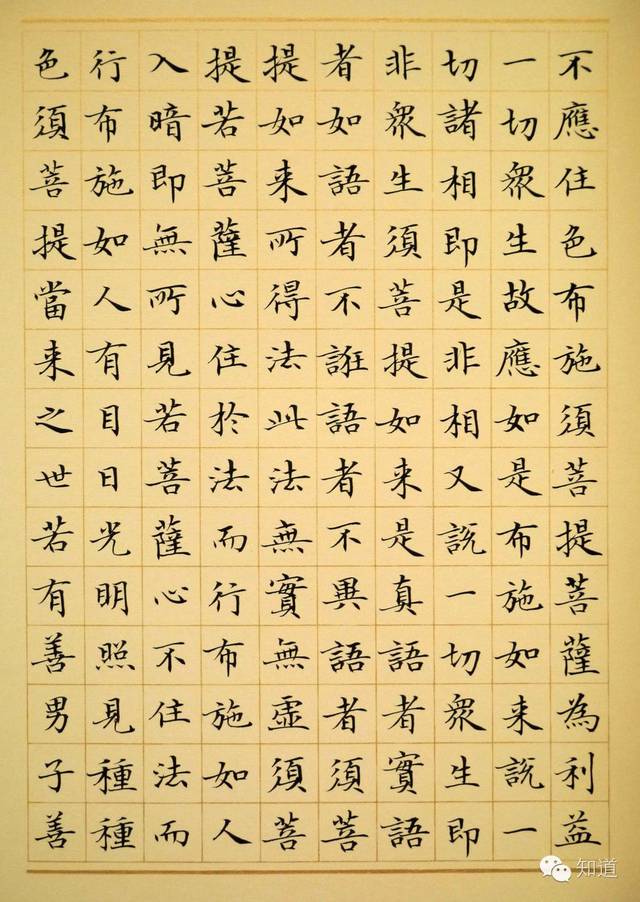 不應住色布施須菩提菩薩為利益
一切眾生故應如是布施如来說一
切諸相即是非相又說一切眾生即
非眾生須菩提如来是真語者實語
者如語者不誑語者不異語者須菩
提如来所得法此法無實無虛須菩
提若菩薩心住於法而行布施如人
入暗即無所見若菩薩心不住法而
行布施如人有目日光明照見種種
色須菩提當来之世若有善男子善
知道